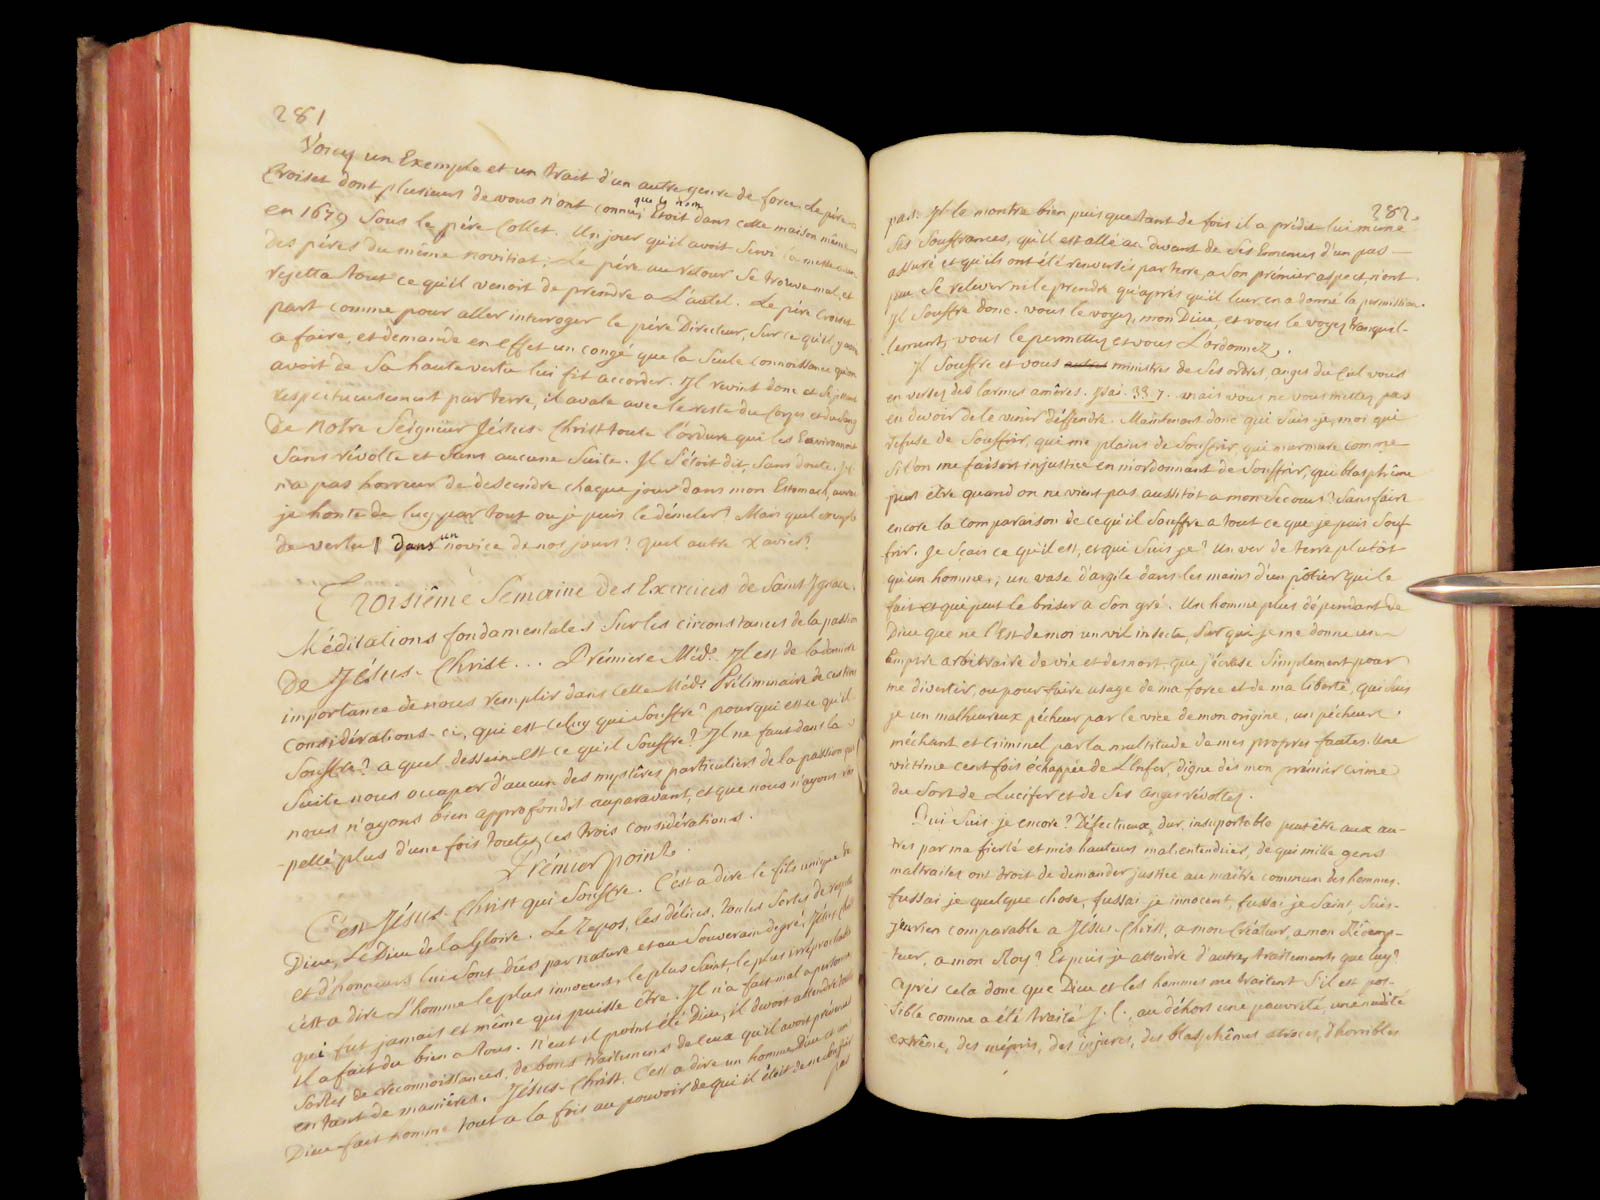 281
Voicy un Exemple et un trait d'un autre genre de force. Le père
Croiset dont plusieurs de vous n'ont connu que le nom, Etoit dans cette maison même
en 1679 sous le père Collet. Un jour qu'il avoit servi la messe a un
des pères du même novitiat; Le père au retour se trouva mal, et
rejetta tout ce qu'il venoit de prendre a L'autel. Le père Croiset
part comme pour aller interroger le père Directeur, sur ce qu'il y avoit
a faire, et demande en effet un congé que la seule connoissance qu'on
avoit de sa haute vertu lui fit accorder. Il revint donc et se jettant
respectueusement par terre, il avale avec le reste du Corps et du sang
De notre Seigneur Jésus-Christ toute l'ordure qui les Environnoit
sans révolte et sans aucune suite. Il s'étoit dit, sans doute. Il
n'a pas horreur de descendre chaque jour dans mon Estomach, aurai
je honte de luy par tout ou je puis le démeler? Mais quel exemple
de vertu dans un novice de nos jours? quel autre Xavier?
Troisième Semaine des Exercices de Saint Ignace.
Méditations fondamentales sur les circonstances de la passion
De Jésus-Christ... Première Méd. Il est de la dernière
importance de nous remplir dans cette Méd. Préliminaire de ces trois
considérations-ci, qui est celuy qui souffre? pourquoi est ce qu'il
souffre? a quel dessein est ce qu'il souffre? Il ne faut dans la
suite nous occuper d'aucun des mystères particuliers de la passion que
nous n'ayons bien approfondit auparavant, et que nous n'ayons rap
-pellé plus d'une fois toutes ces trois considérations.
Prémier point.
C'est Jésus-Christ qui souffre. C'est a dire le fils unique de
Dieu, Le Dieu de la Gloire. Le Repos, les délices, toutes sortes de respects
et d'honneurs lui sont dûs par nature et au souverain degré. Jésus Christ
c'est a dire L'homme le plus innocent, le plus saint, le plus irréprochable
qui fut jamais et même qui puisse être. Il n'a fait mal a personne
il a fait du bien a tous. N'eut il point été Dieu, il devoit attendre toutes
sortes de reconnoissances, de bons traitemens de ceux qu'il avoit prévenus
en tant de manières. Jésus-Christ. C'est a dire un homme Dieu et un
Dieu-fait homme tout a la fois au pouvoir de qui il étoit de ne souffrir
pas
282.
pas. Il le montre bien puisque tant de fois il a prédit lui même
ses souffrances, qu'il est allé au devant de ses Ennemis d'un pas
assuré et qu'ils ont été renversés par terre, a son prémier aspect, n'ont
pu se relever ni le prendre qu'après qu'il leur en a donné la permission.
Il souffre donc. vous le voyez, mon Dieu, et vous le voyez tranquil-
-lement, vous le permettez et vous L'ordonnez.
Il souffre et vous ministres de ses ordres, anges du Ciel vous
en versez des larmes amères. Isai. 33. 7. mais vous ne vous mettez pas
en devoir de le venir déffendre. Maintenant donc qui suis-je, moi qui
refuse de souffrir, qui me plains de souffrir, qui murmure comme
si l'on me faisoit injustice en m'ordonnant de souffrir, qui blasphème
peut être quand on ne vient pas aussitôt a mon secours? Sans faire
encore la comparaison de ce qu'il souffre a tout ce que je puis souf
frir. Je sçais ce qu'il est, et qui suis je? Un ver de terre plutôt
qu'un homme, un vase d'argile dans les mains d'un pôtier qui le
fait et qui peut le briser a son gré. Un homme plus dépendant de
Dieu que ne l'Est de moi un vil insecte, sur qui je me donne un
Empire arbitraire de vie et de mort, que j'écrase simplement pour
me divertir, ou pour faire usage de ma force et de ma liberté, qui suis
je un malheureux pécheur par le vice de mon origine, un pécheur
méchant et criminel par la multitude de mes propres fautes. Une
victime cent fois échappée de L'Enfer, digne dès mon prémier crime
du sort de Lucifer et de ses anges révoltez.
Qui suis je encore? Défectueux, dur, insuportable peut être aux au-
tres par ma fierté et mes hauteurs mal entendües, de qui mille gens
maltraitez ont droit de demander justice au maître commun des hommes.
fussai je quelque chose, fussai je innocent, fussai je saint, suis-
je en rien comparable a Jésus-Christ, a mon Créateur, a mon Rédemp-
-teur, a mon Roy? Et puis je attendre d'autres traitements que luy?
Après cela donc que Dieu et les hommes me traitent s'il est pos-
-sible comme a été traité J. C., au déhors une pauvreté, une nudité
extrême, des mépris, des injures, des blasphêmes atroces, d'horribles